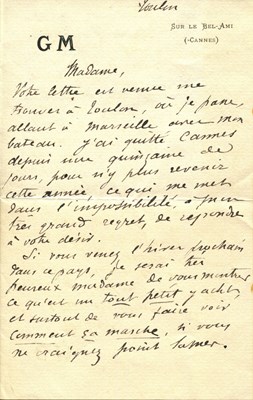 Toulon
SUR LE BEL-AMI
(-CANNES)
GM
Madame,
Votre lettre est venue me
trouver à Toulon, où je passe,
allant à Marseille avec mon
bateau. J'ai quitté Cannes
depuis une quinzaine de
jours, pour n'y plus revenir
cette année, ce qui me met
dans l'impossibilité, à mon
très grand regret, de répondre
à votre désir.
Si vous venez l'hiver prochain
dans ce pays, je serai très
heureux madame de vous montrer
ce qu'est un tout petit yacht,
et surtout de vous faire voir
comment ça marche, si vous
ne craignez point la mer.